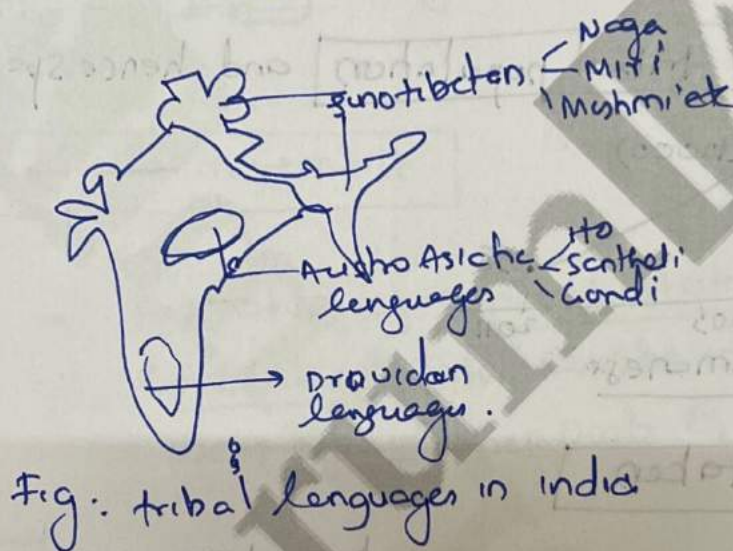 Naga
sinotibetan Miri
Mishmi etc
Austro Asiatic Ho
languages Santhali
Gondi
Dravidan
languages.
Fig: tribal languages in india